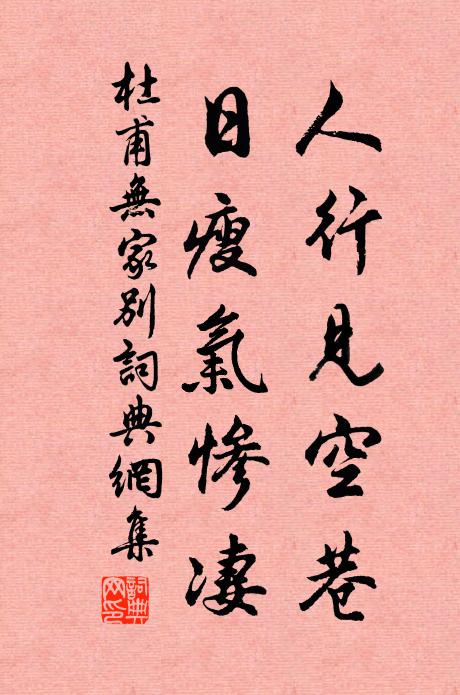 人行見空巷
日瘦氣慘凄
杜甫無家別詞典網集
詞典網印